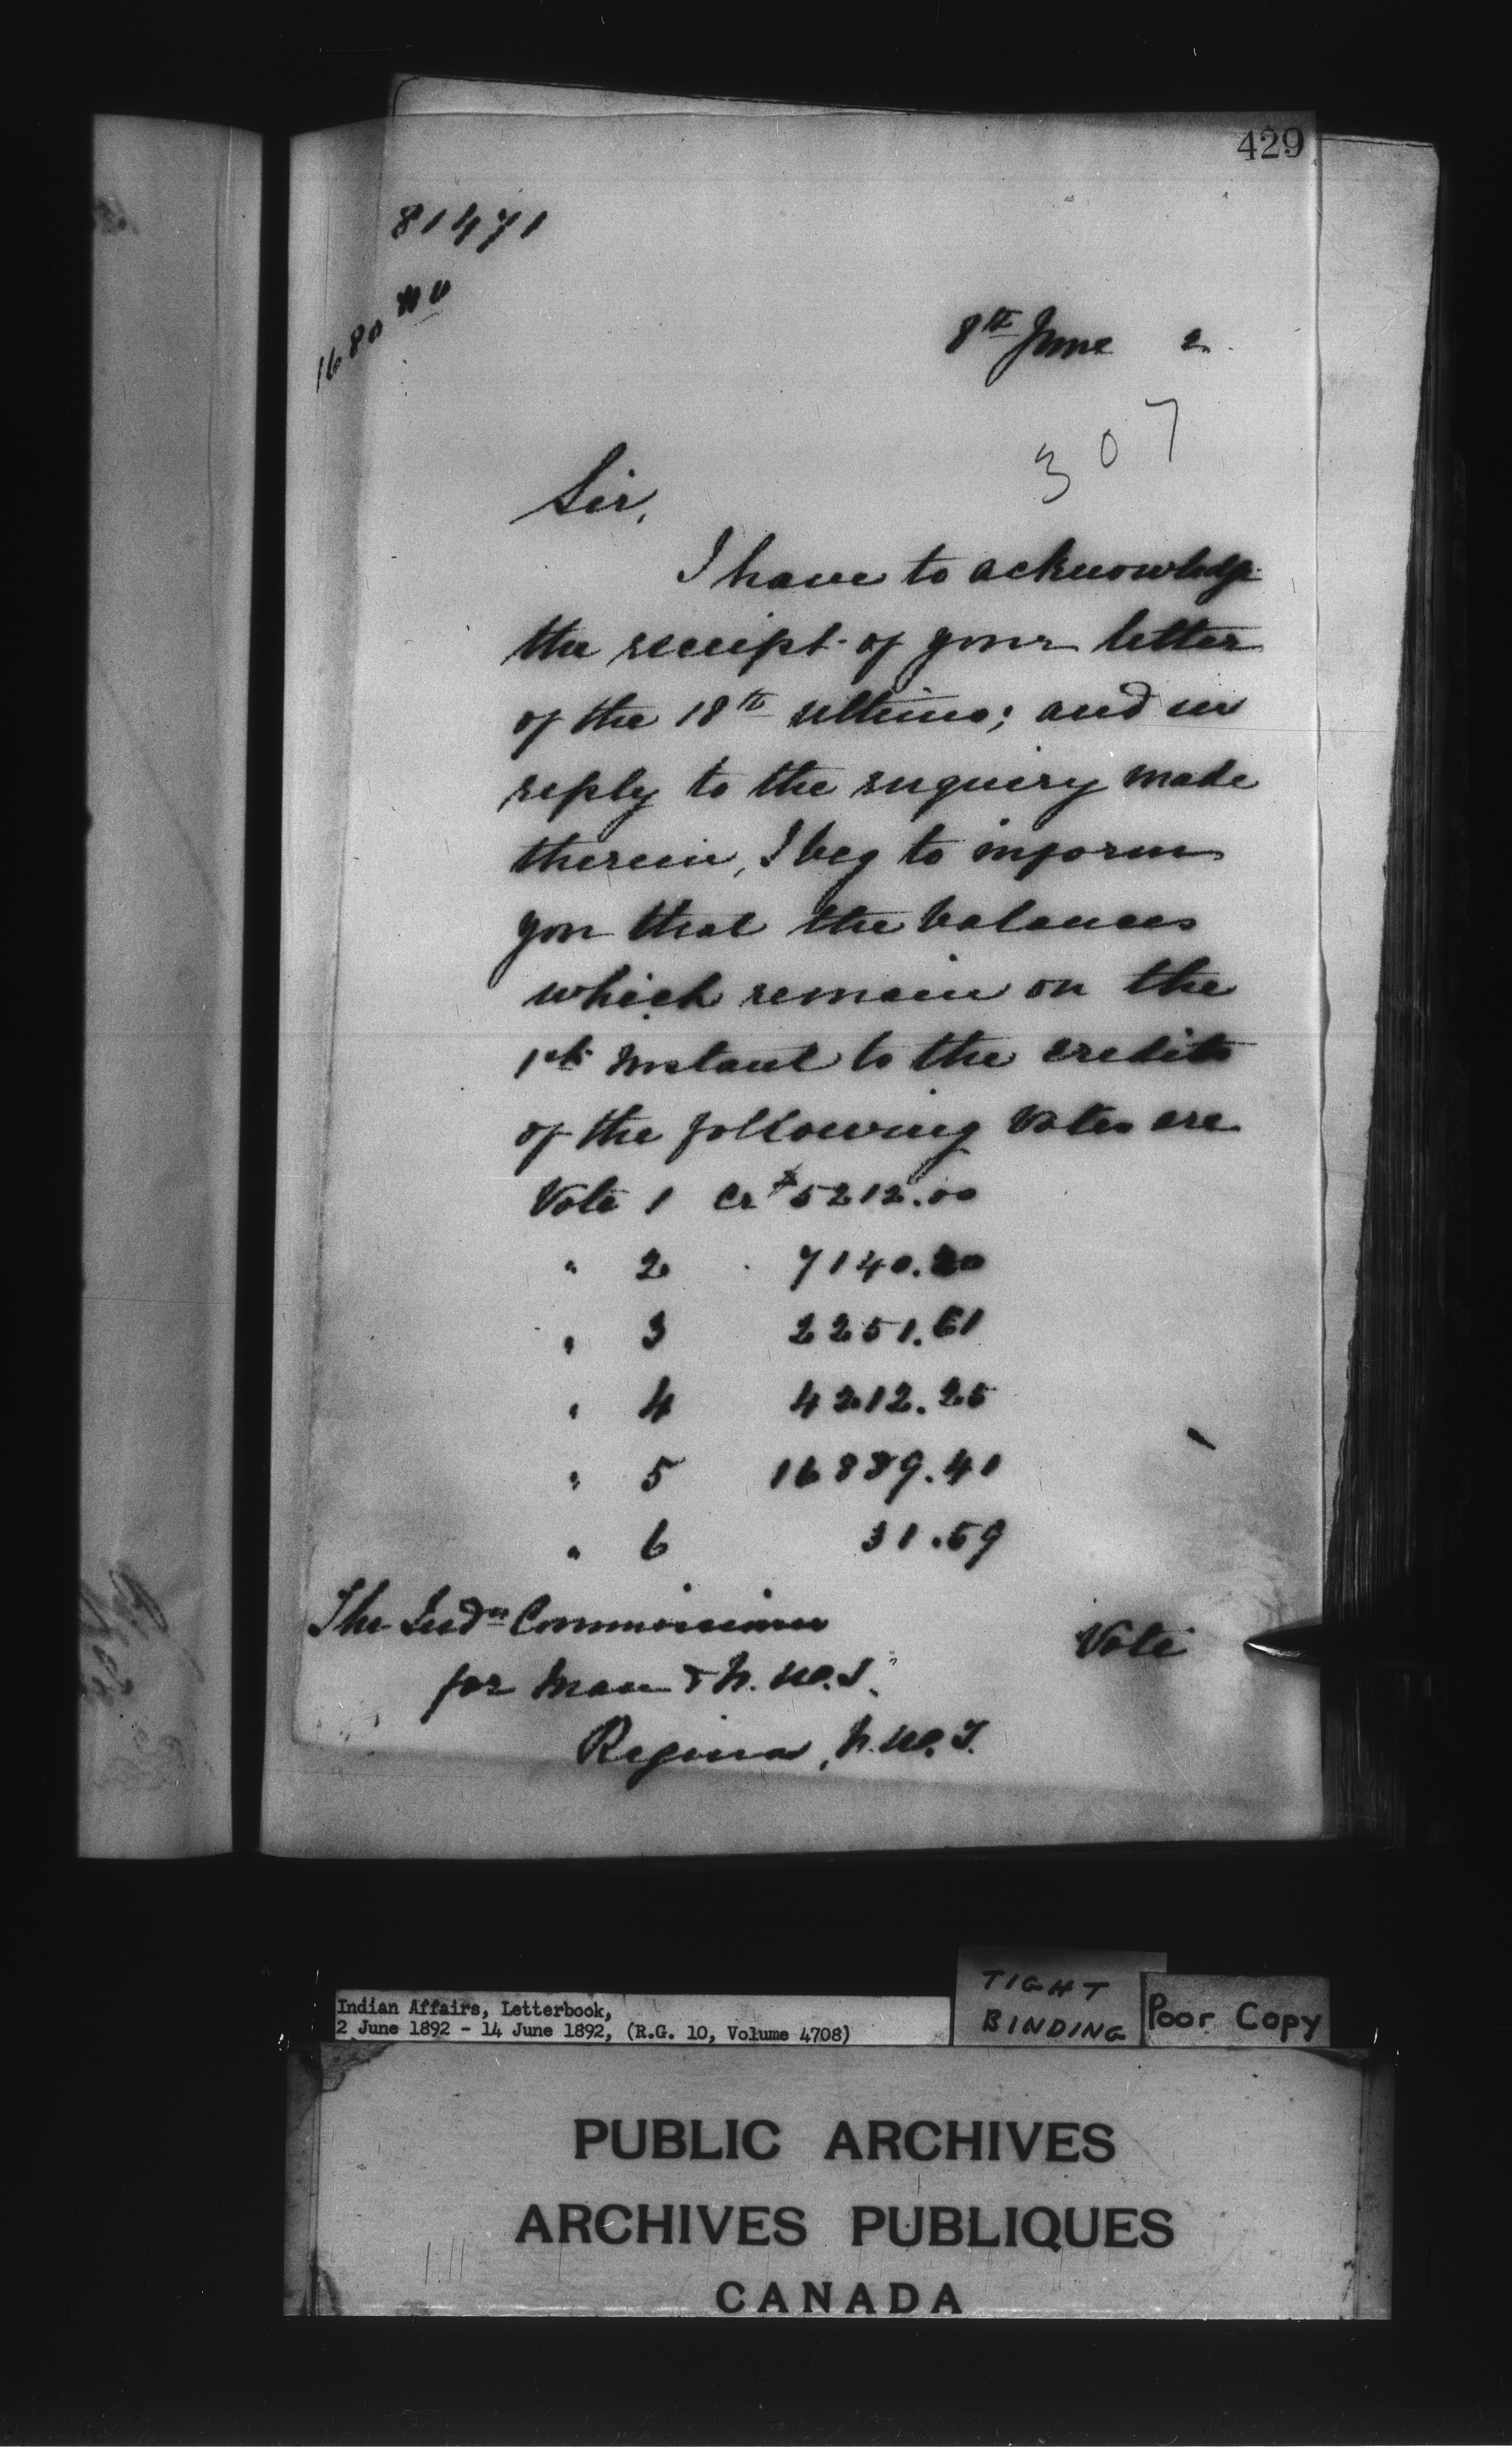 429
81471
1680
8th June 2.
307
Sir,
I have to acknowledge
the receipt of your letter
of the 18th ultimo; and in
reply to the enquiry made
therein, I beg to inform
you that the balances
which remain on the
1st instant to the credits
of the following votes are
Vote 1 Cr $5212.00
" 2 7140.20
" 3 2251.61
" 4 4212.25
" 5 16889.41
" 6 31.59
The Indn Commissioner
for Man & N.W.T.
Regina, N.W.T.
Vote
Indian Affairs, Letterbook,
2 June 1892 - 14 June 1892, (R.G. 10, Volume 4708)
TIGHT
BINDING
Poor Copy
PUBLIC ARCHIVES
ARCHIVES PUBLIQUES
CANADA